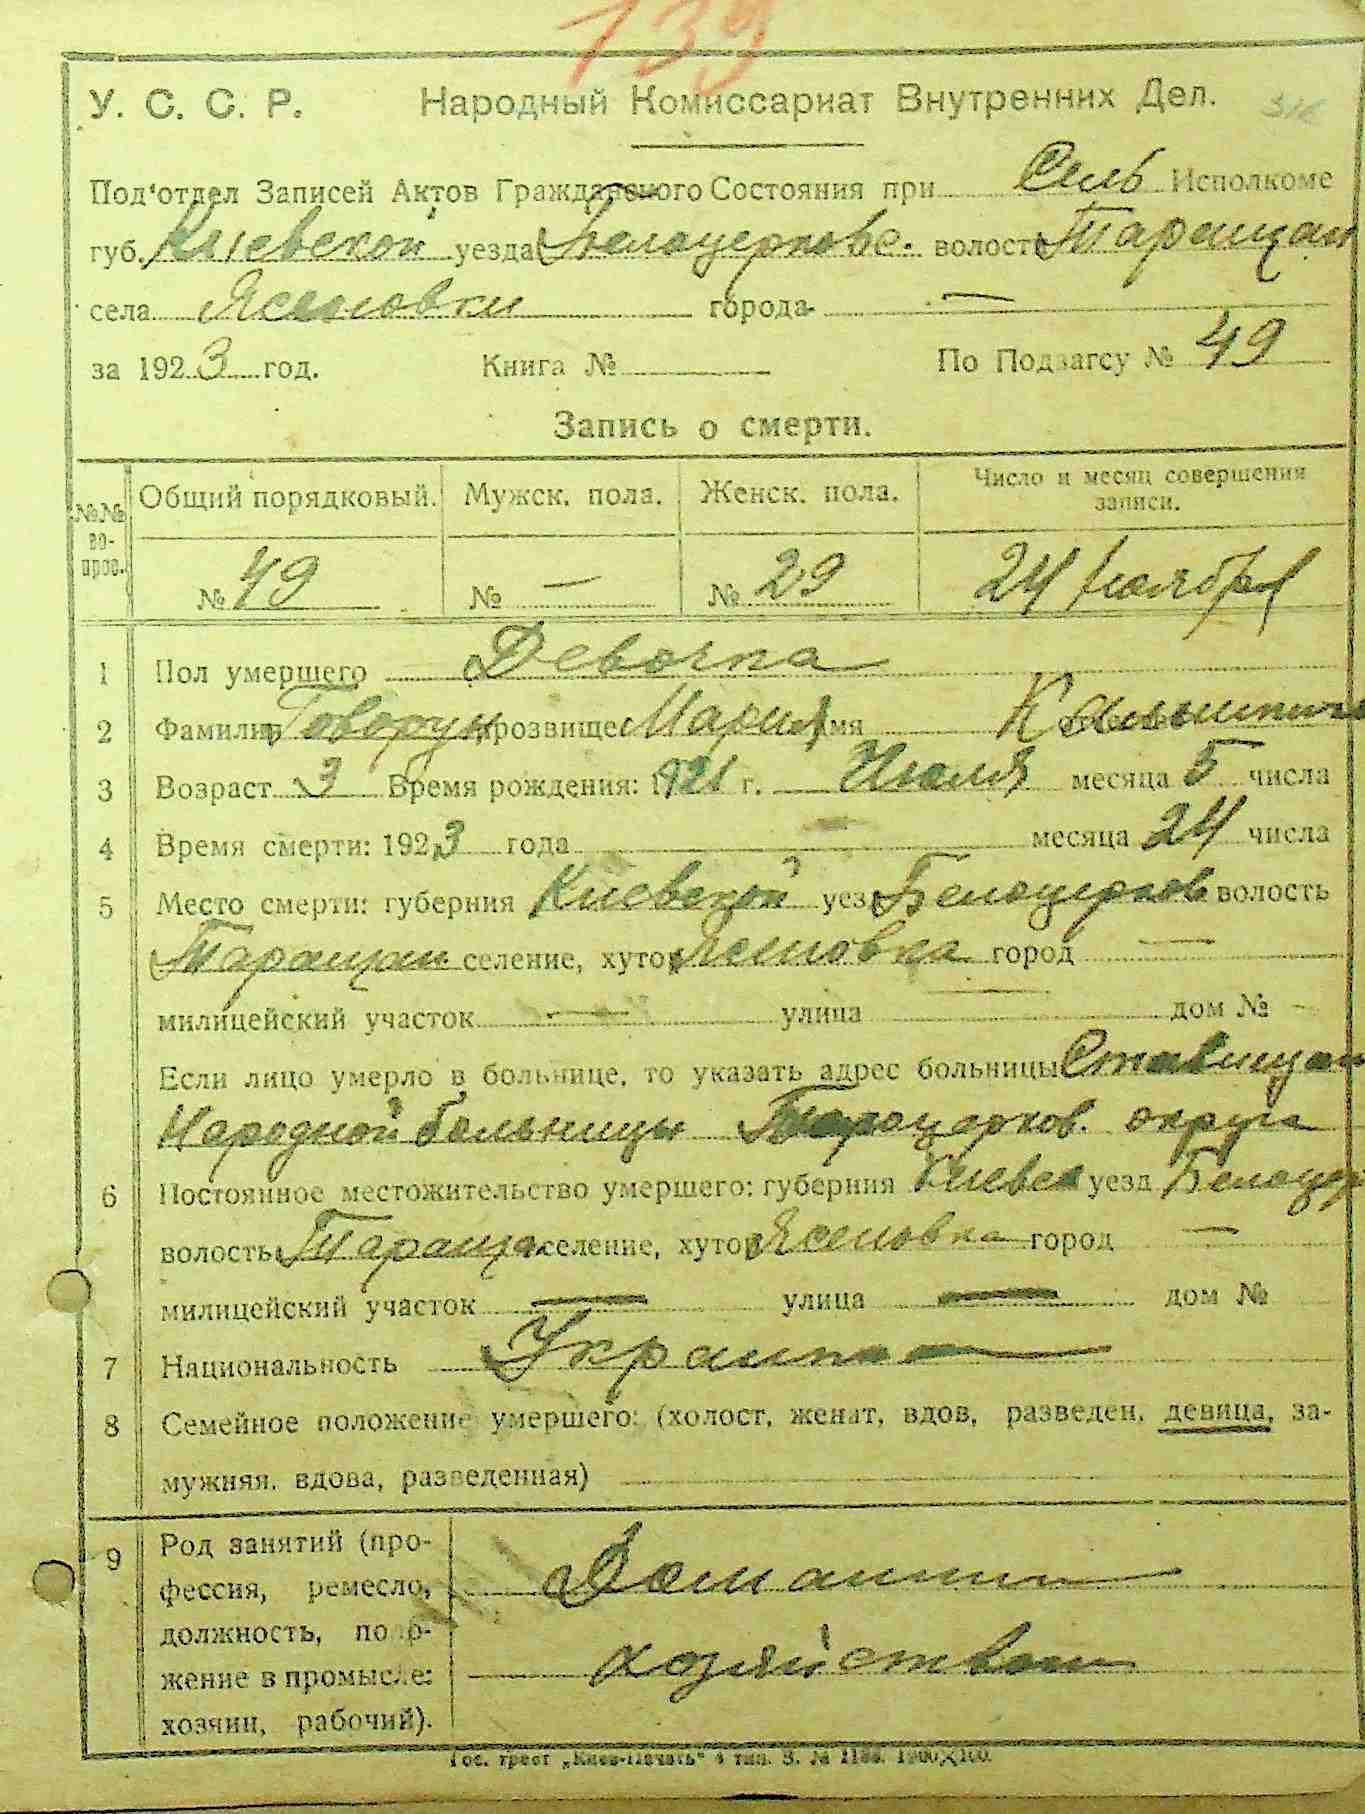 139
У. С. С. Р. Народный Комиссариат Внутренних Дел.
Под'отдел Записей Актов Гражданского Состояния при Сель Исполкоме
губ. Киевской уезда Белоцерковс. волости Таращан
села Ясеновки города —
за 1923 год. Книга № По Подзагсу № 49
Запись о смерти.
№№ во-прос. Общий порядковый. Мужск. пола. Женск. пола. Число и месяц совершения записи.
№ 49 № — № 29 24 Ноября
1 Пол умершего Девочка
2 Фамилия Говорун прозвище Мария имя
3 Возраст 3 Время рождения: 1921 г. Июля месяца 5 числа
4 Время смерти: 1923 года месяца 24 числа
5 Место смерти: губерния Киевской уезд Белоцерков волость
Таращан селение, хутор Ясеновка город —
милицейский участок — улица дом № –
Если лицо умерло в больнице, то указать адрес больницы Ставищан
Народной больницы округа
6 Постоянное местожительство умершего: губерния Киевск уезд Белоцер
волость Тараща селение, хутор Ясеновка город —
милицейский участок — улица — дом №
7 Национальность Украинка
8 Семейное положение умершего: (холост, женат, вдов, разведен, девица, за-
мужняя, вдова, разведенная)
9 Род занятий (про-
фессия, ремесло, Домашнии
должность, поло-
жение в промысле: хозяйством
хозяин, рабочий).
Гос. трест „Киев-Печать" 4 тип. З. №